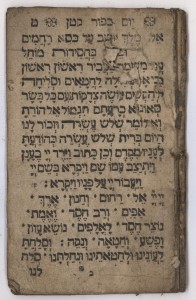 יום כפור קטן ט
אל מלך יושב על כסא רחמים
בחסידות מוחל
מעביר ראשון ראשון
מחילה לחטאים וסליחה
צדקות עם כל בשר
כרעתם תגמול אל הורית לנו
לומר שלש עשרה וזכור לנו
היום ברית שלש עשרה כהודעת
לעניו מקדם וכן כתוב וירד יי בענן
ויתיצב עמו שם ויקרא בשם יי
ויעבור יי על פניו ויקרא:
יי יי אל רחום וחנון ארך
אפים ורב חסד ואמת
נוצר חסד לאלפים נושא עון
ופשע וחטאה ונקה: וסלחת
לעוננו ולחטאתנו ונחלתנו סלח
לנו